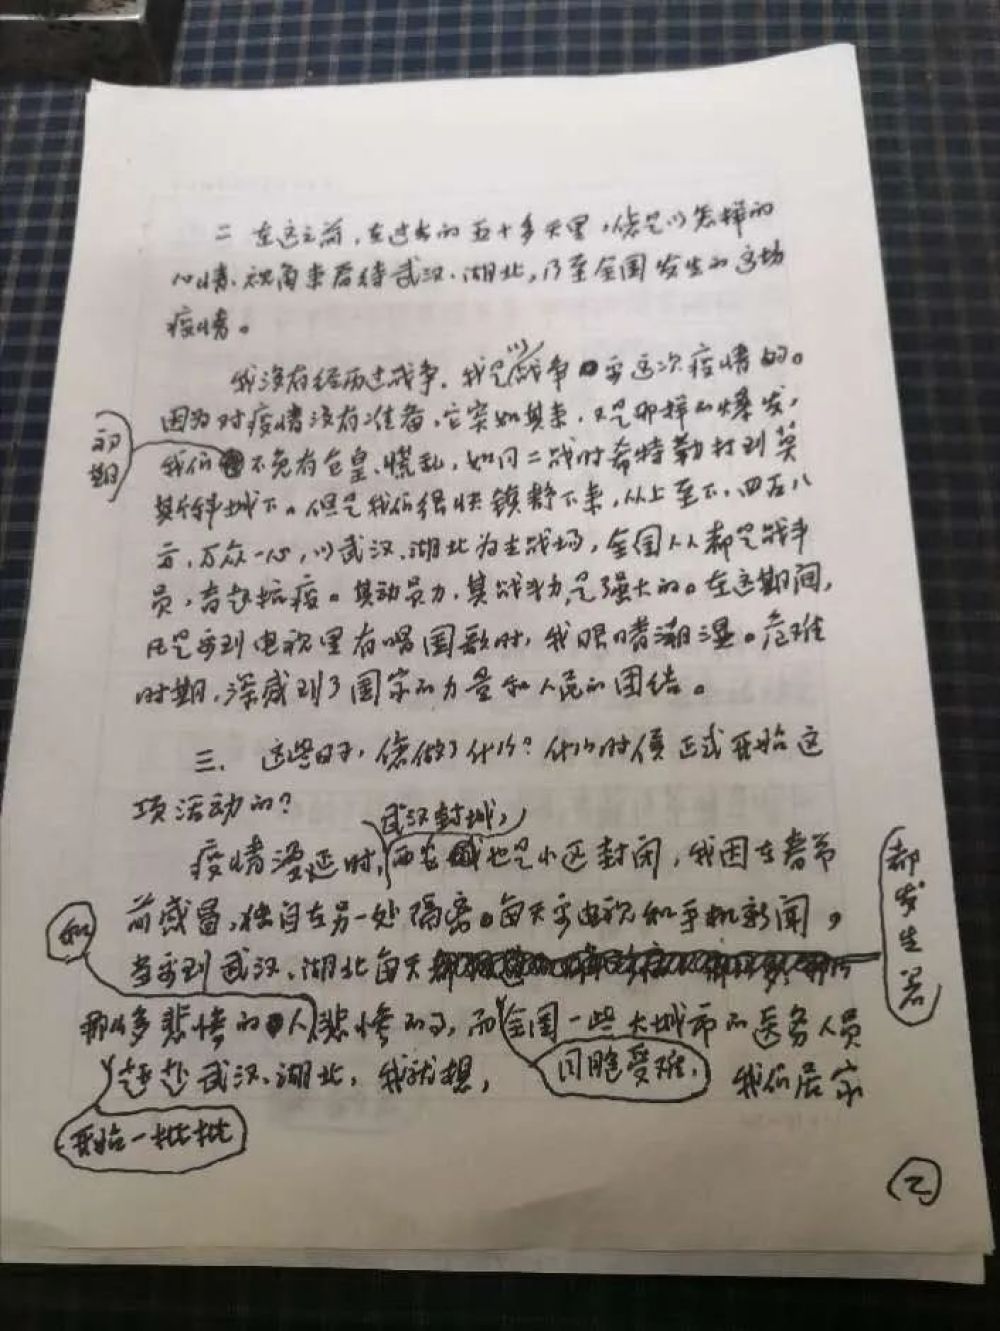 二 在这之前，在过去的五十多天里，您是以怎样的
心情、视角来看待武汉、湖北，乃至全国发生的这场
疫情。
我没有经历过战争，我是以战争 看这次疫情的。
因为对疫情没有准备，它突如其来，又是那样的爆发，
初期
我们 不免有仓皇、慌乱，如同二战时希特勒打到莫
斯科城下。但是我们很快镇静下来，从上至下，四面八
方，万众一心，以武汉、湖北为主战场，全国人人都是战斗
员，奋起抗疫。其动员力，其战斗力是强大的。在这期间，
凡是看到电视里有唱国歌时，我眼睛潮湿。危难
时期，深感到了国家的力量和人民的团结。
三、这些日子，您做了什么？什么时候正式开始这
项活动的？
武汉封城，
疫情漫延时，西安 也是小区封闭，我因在春节
前感冒，独自在另一处隔离。每天看电视和手机新闻，
都发生着
当看到武汉、湖北每天
和
那么多悲惨的 人 悲惨的事，而全国一些大城市的医务人员
赶赴武汉、湖北，我就想， 我们居家
同胞受难，
开始一批批
二